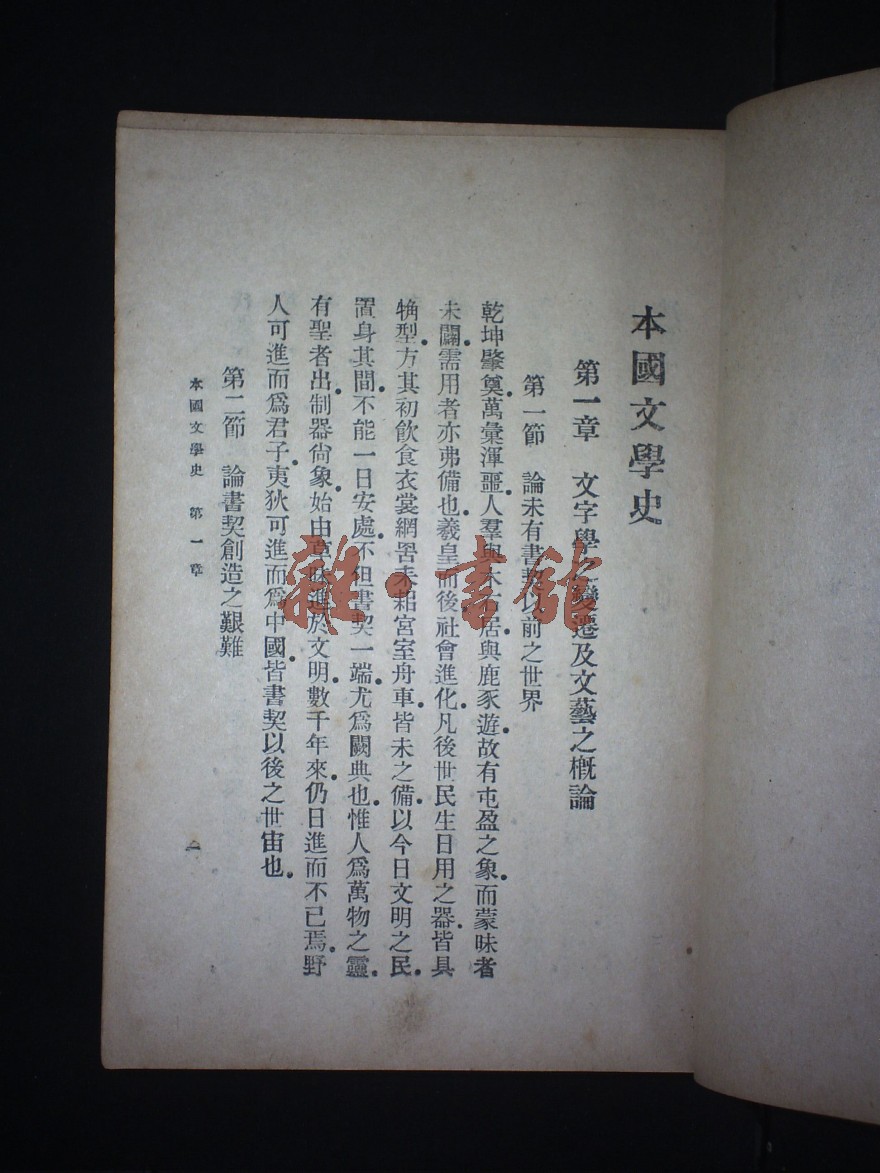 本國文學史
第一章　文字學之變遷及文藝之概論
第一節　論未有書契以前之世界
乾坤肇奠萬彙渾噩人羣與木石居與鹿豕遊故有屯盈之象而蒙昧者
未闢需用者亦弗備也羲皇而後社會進化凡後世民生日用之器皆具
觕型方其初飲食衣裳網罟耒耜宮室舟車皆未之備以今日文明之民
置身其間不能一日安處不但書契一端尤爲闕典也惟人爲萬物之靈
有聖者出制器尙象始由草昧進於文明數千年來仍日進而不已焉野
人可進而爲君子夷狄可進而爲中國皆書契以後之世宙也
第二節　論書契創造之艱難
本國文學史　第一章
一
雜・書館